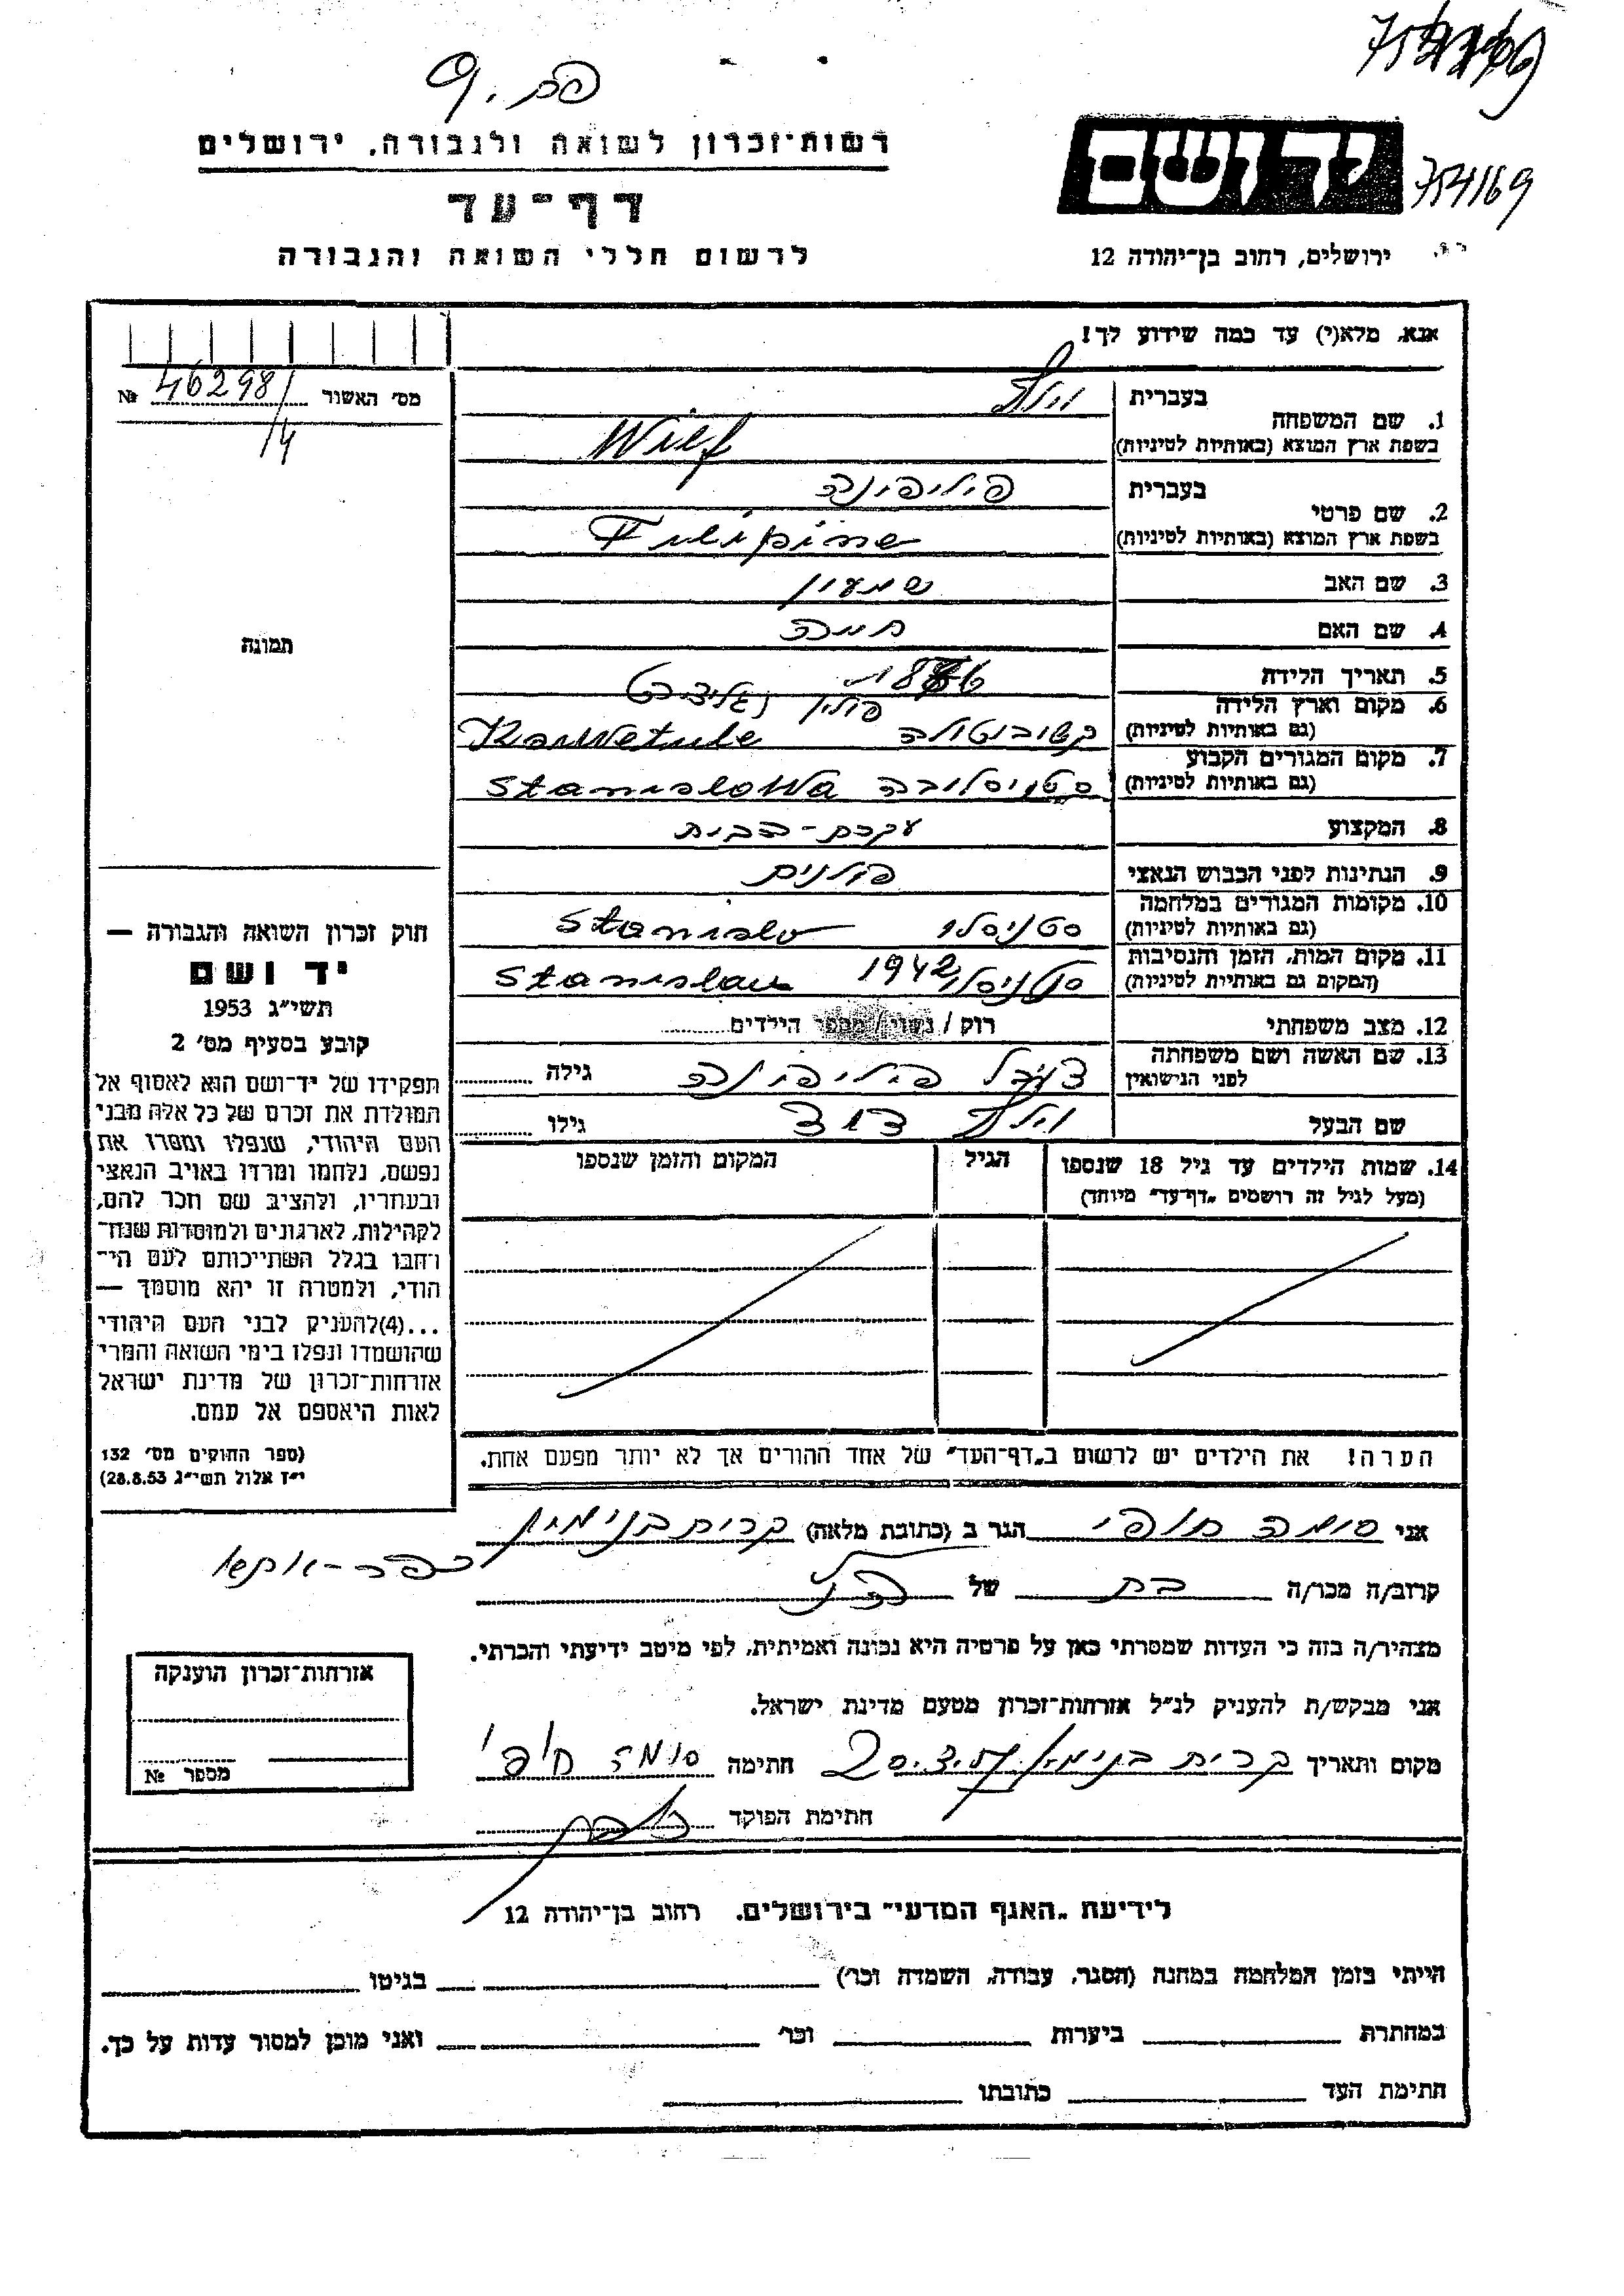 754169
רשות־זכרון לשואה ולגבורה, ירושלים
דף־עד
לרשום חללי השואה והגבורה
יד ושם
ירושלים, רחוב בן־יהודה 12
אנא, מלא(י) עד כמה שידוע לך!
מס׳ האשור 46298/4 №
תמונה
1. שם המשפחה בעברית וילף
בשפת ארץ המוצא (באותיות לטיניות) Wilf
2. שם פרטי בעברית פיליפינה
בשפת ארץ המוצא (באותיות לטיניות) Filipine
3. שם האב שמעון
4. שם האם חיה
5. תאריך הלידה
6. מקום וארץ הלידה פולין גליציה
(גם באותיות לטיניות)
7. מקום המגורים הקבוע
(גם באותיות לטיניות) סטניסלובה Stanislowa
8. המקצוע עקרת-הבית
9. הנתינות לפני הכבוש הנאצי פולנית
10. מקומות המגורים במלחמה
(גם באותיות לטיניות) סטניסלו Stanislo
11. מקום המות, הזמן והנסיבות
(המקום גם באותיות לטיניות) סטניסלו 1942 Stanislau
12. מצב משפחתי רוק / נשוי / מספר הילדים
13. שם האשה ושם משפחתה
לפני הנישואין פיליפינה גילה
שם הבעל וילף דוד גילו
14. שמות הילדים עד גיל 18 שנספו הגיל המקום והזמן שנספו
(מעל לגיל זה רושמים „דף־עד״ מיוחד)
הערה! את הילדים יש לרשום ב„דף־העד״ של אחד ההורים אך לא יותר מפעם אחת.
חוק זכרון השואה והגבורה —
יד ושם
תשי״ג 1953
קובע בסעיף מס׳ 2
תפקידו של יד־ושם הוא לאסוף אל
המולדת את זכרם של כל אלה מבני
העם היהודי, שנפלו ומסרו את
נפשם, נלחמו ומרדו באויב הנאצי
ובעוזריו, ולהציב שם וזכר להם,
לקהילות, לארגונים ולמוסדות שנח־
רבו בגלל השתייכותם לעם הי־
הודי, ולמטרה זו יהא מוסמך —
...(4)להעניק לבני העם היהודי
שהושמדו ונפלו בימי השואה והמרי
אזרחות־זכרון של מדינת ישראל
לאות היאספם אל עמם.
(ספר החוקים מס׳ 132
י״ז אלול תשי״ג 28.8.53)
אני חופי הגר ב (כתובת מלאה) קרית בנימין
כפר-אתא
קרוב/ה מכר/ה בת של הנ״ל
מצהיר/ה בזה כי העדות שמסרתי כאן על פרטיה היא נכונה ואמיתית, לפי מיטב ידיעתי והכרתי.
אני מבקש/ת להעניק לנ״ל אזרחות־זכרון מטעם מדינת ישראל.
מקום ותאריך קרית בנימין חתימה חופי
חתימת הפוקד
אזרחות־זכרון הוענקה
מספר №
לידיעת „האגף המדעי״ בירושלים, רחוב בן־יהודה 12
הייתי בזמן המלחמה במחנה (הסגר, עבודה, השמדה וכו׳) בגיטו
במחתרת ביערות וכו׳ ואני מוכן למסור עדות על כך.
חתימת העד כתובתו